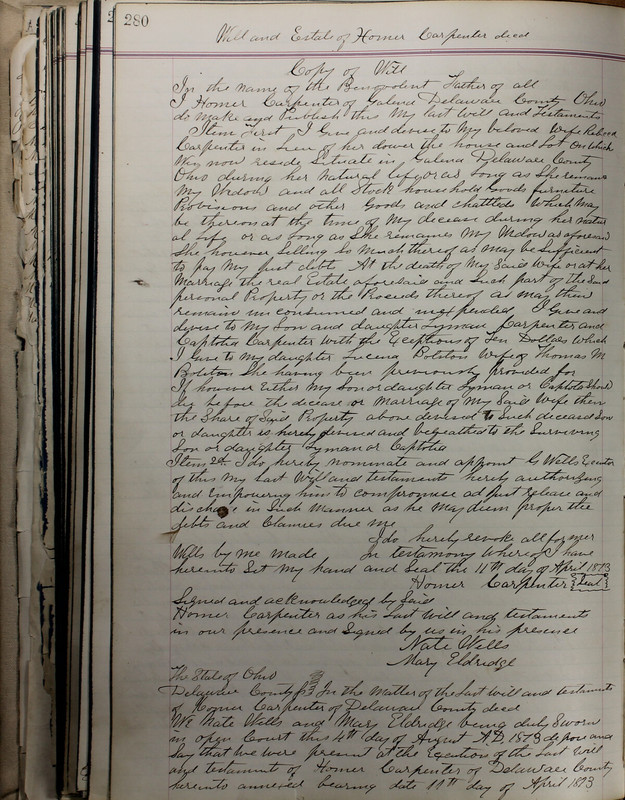 280
Will and Estate of Homer Carpenter decd
Copy of Will
In the name of the Benevolent Father of all
I Homer Carpenter of Galena Delaware County Ohio
do Make and Publish this My last Will and Testaments
Item First I Give and devise to My beloved Wife
Carpenter in Lieu of her dower the house and Lot On which
We now reside Situate in Galena Delaware County
Ohio during her Natural life or as long as She remains
My Widow and all Stock household Goods furniture
Provisions and other Goods and chattels Which May
be thereon at the time of My decease during her Natur
al life or as long as She remaines My Widow as aforesaid
She however Selling So Much thereof as May be Sufficient
to pay My just debt At the death of My Said Wife or at her
Marriage the real Estate aforesaid and Such part of the Said
personal Property or the Proceeds thereof as may then
remain unconsumed and unexpended I Give and
devise to My Son and daughter Lyman Carpenter and
Captolia Carpenter with the Exceptions of Ten Dollars Which
I Give to My daughter Wife of Thomas M
She having been previously provided for
If however Either My Son or daughter Lyman or Captola Should
die before the decease or Marriage of My Said Wife then
the Share of Said Property above devised to Such deceased Son
or daughter is hereby devised and bequeathed to the Surviving
Son or daughter Lyman or Captolia
Item 2d I do hereby nominate and appoint G Wells Executor
of this My Last Will and testaments hereby authorizing
and impowering him to compromise adjust release and
discharge in Such Manner as he May deem proper the
debts and Claimes due me
I do hereby revoke all former
Wills by me made In testimony Whereof I have
hereunto Set My hand and Seal the 11th day of April 1873
Homer Carpenter Seal
Signed and acknowledged by Said
Homer Carpenter as his Last Will and testaments
in our presence and Signed by us in his presence
Nate Wells
Mary Eldridge
The State of Ohio
Delaware County SS In the Matter of the Last will and testaments
of Homer Carpenter of Delaware County decd
We Nate Wells and Mary Eldridge being duly Sworn
in open Court this 4th day of August AD 1873 depose and
Say that we were present at the Execution of the Last Will
and testament of Homer Carpenter of Delaware County
hereunto annexed bearing date 11th day of April 1873